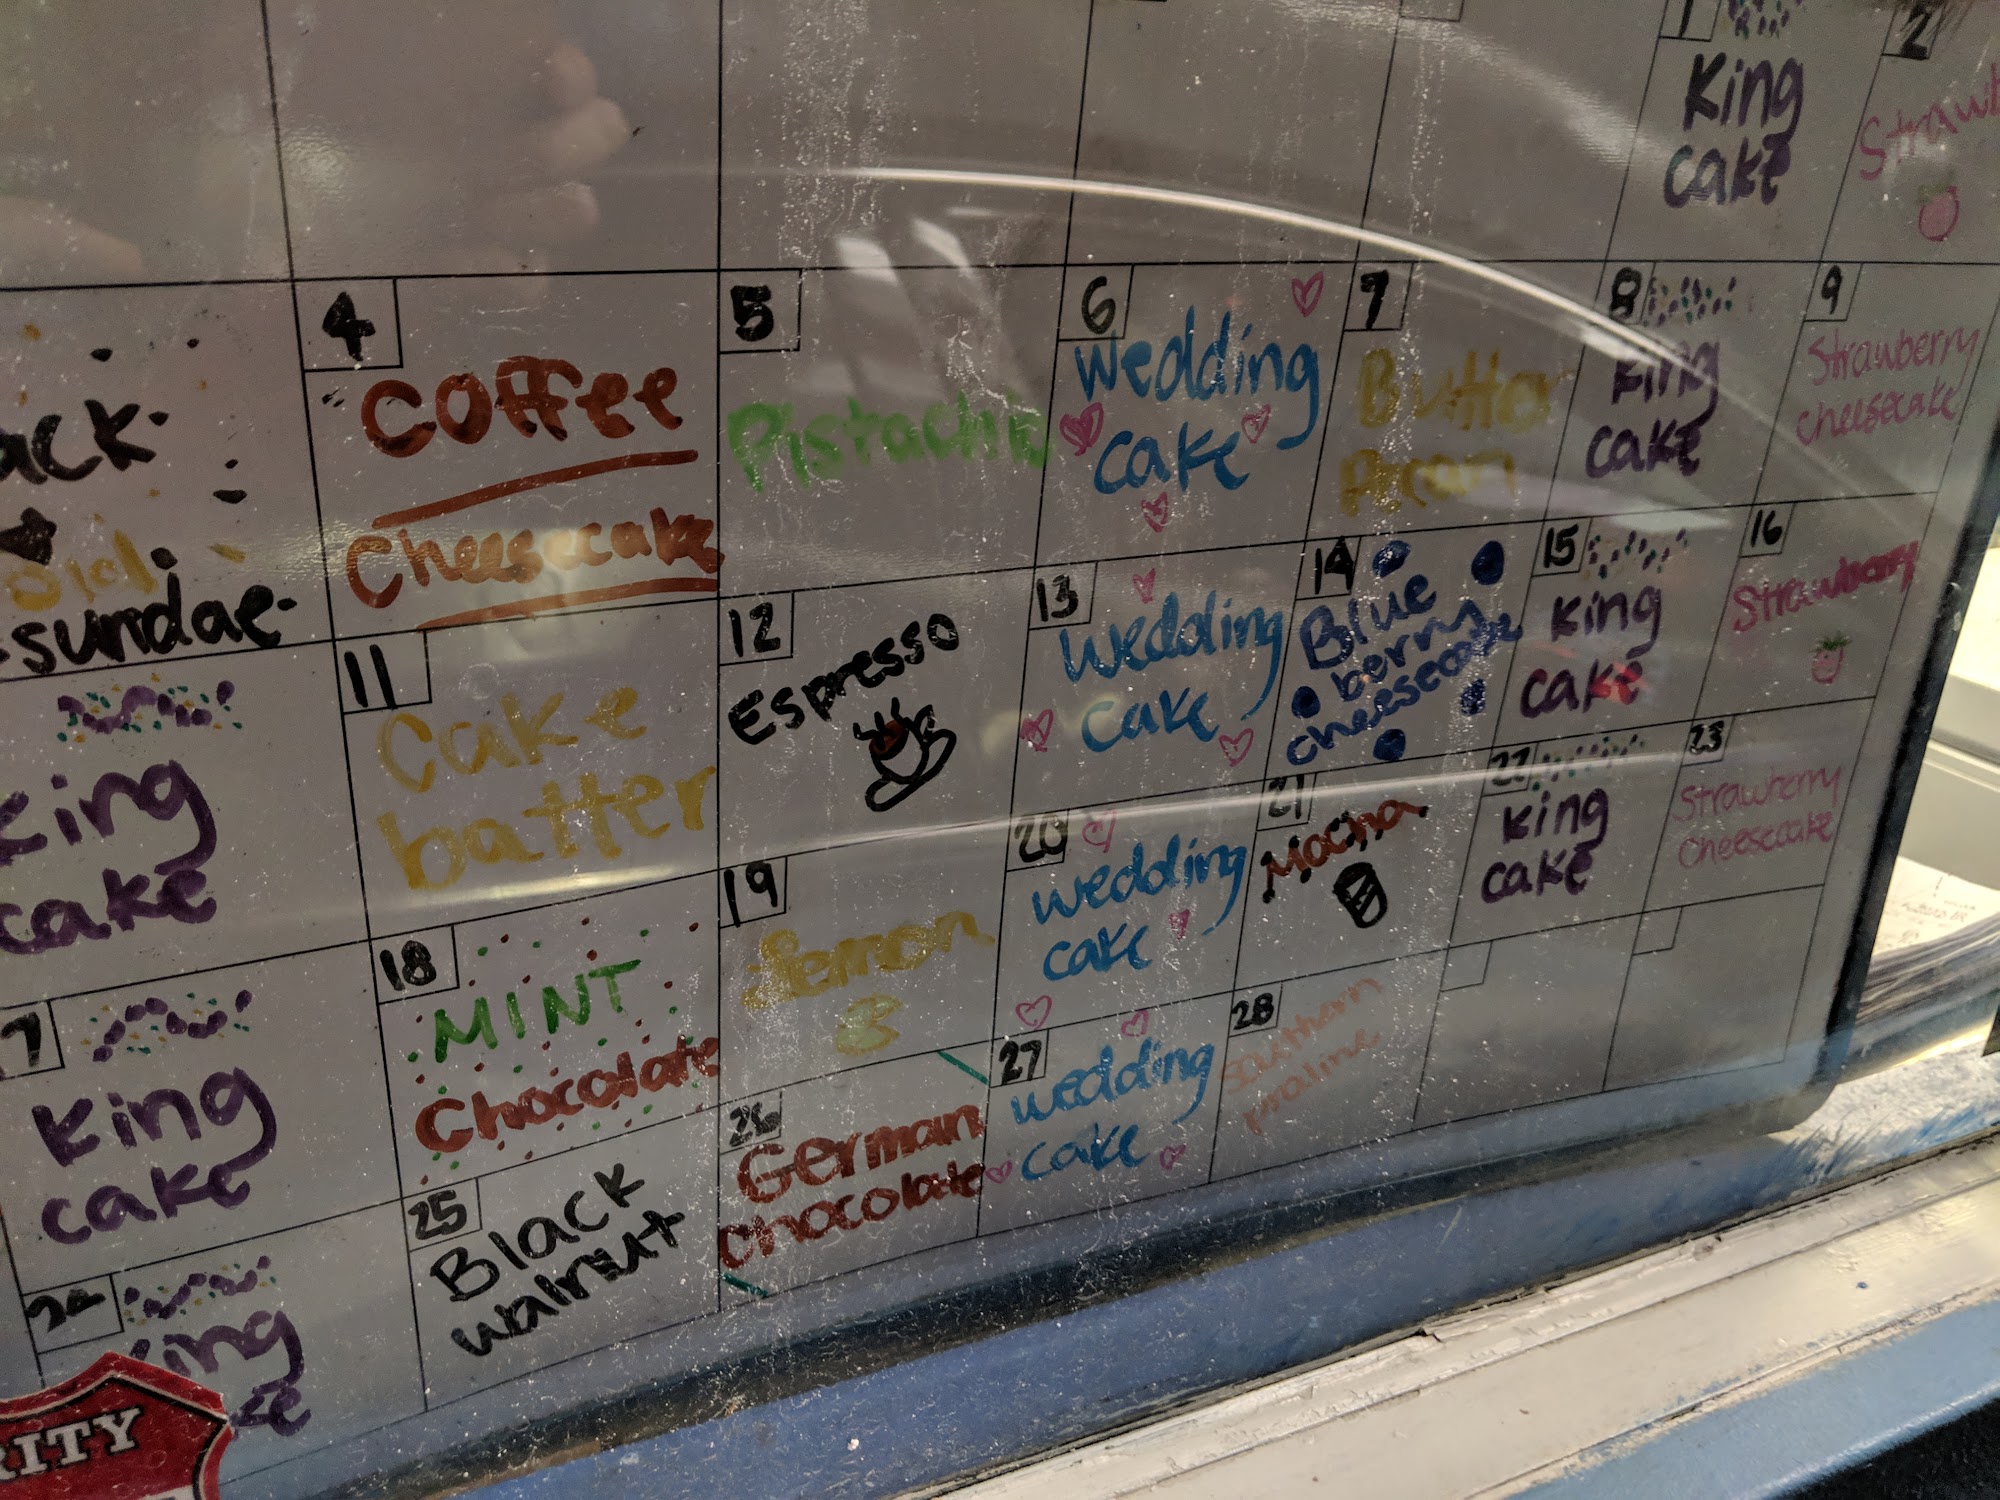 1
King
cake
2
ack
sundae
4
Coffee
Cheesecake
5
Pistachio
6
Wedding
cake
7
Butter
Pecan
8
King
cake
9
Strawberry
cheesecake
King
cake
11
Cake
batter
12
Espresso
13
Wedding
cake
14
Blue
berry
cheesecake
15
King
cake
16
Strawberry
7
King
cake
18
MINT
Chocolate
19
Lemon
20
wedding
cake
21
Mocha
22
King
cake
23
Strawberry
cheesecake
24
King
ke
25
Black
walnut
26
German
chocolate
27
wedding
cake
28
Southern
praline
RITY